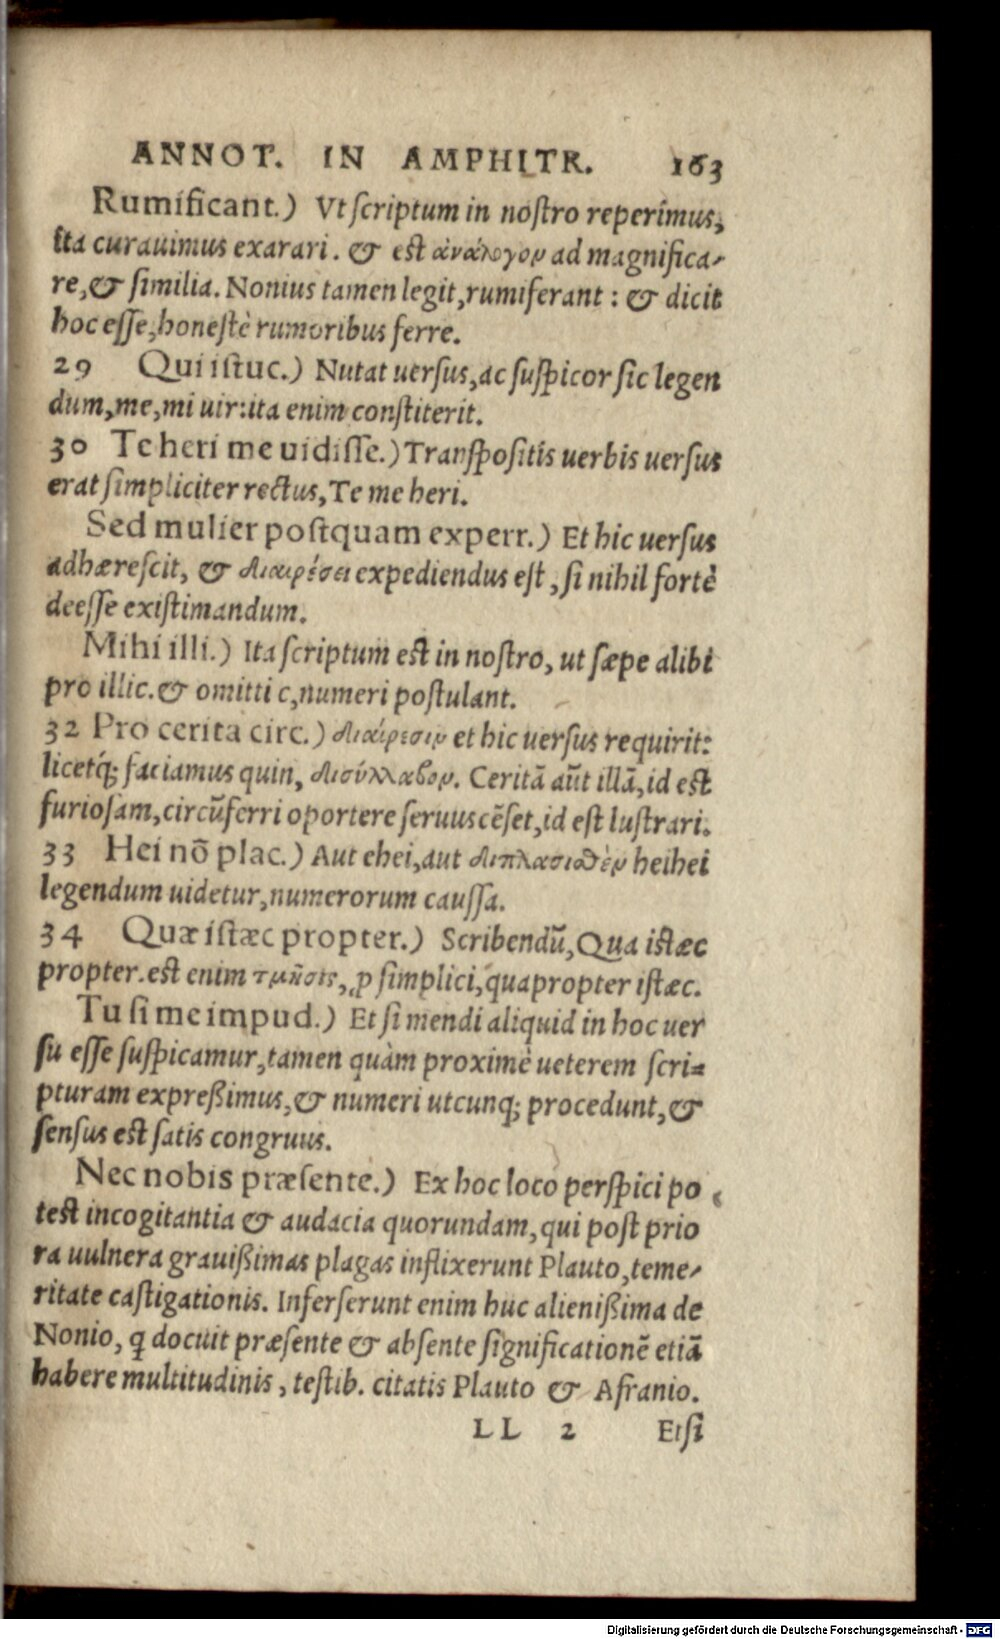 ANNOT. IN AMPHITR. 163
Rumificant.) Vt scriptum in nostro reperimus,
ita curauimus exarari. & est ἀνάλογον ad magnifica-
re, & similia. Nonius tamen legit, rumiferant: & dicit
hoc esse, honestè rumoribus ferre.
29 Qui istuc.) Nutat uersus, ac suspicor sic legen
dum, me, mi uir: ita enim constiterit.
30 Te heri me uidisse.) Transpositis uerbis uersus
erat simpliciter rectus, Te me heri.
Sed mulier postquam experr.) Et hic uersus
adhærescit, & διαιρέσει expediendus est, si nihil fortè
deesse existimandum.
Mihi illi.) Ita scriptum est in nostro, ut sæpe alibi
pro illic. & omitti c, numeri postulant.
32 Pro cerita circ.) διαίρεσιν et hic uersus requirit:
licetq́; faciamus quin, δισύλλαβον. Ceritā aūt illā, id est
furiosam, circūferri oportere seruus cēset, id est lustrari.
33 Hei nō plac.) Aut ehei, aut διπλασιαθὲν heihei
legendum uidetur, numerorum caussa.
34 Quæ istæc propter.) Scribendū, Qua istæc
propter. est enim τμῆσις, ꝓ simplici, quapropter istæc.
Tu si me impud.) Et si mendi aliquid in hoc uer
su esse suspicamur, tamen quàm proximè ueterem scri-
pturam expreßimus, & numeri utcunq; procedunt, &
sensus est satis congruus.
Nec nobis præsente.) Ex hoc loco perspici po
test incogitantia & audacia quorundam, qui post prio
ra uulnera grauißimas plagas inflixerunt Plauto, teme-
ritate castigationis. Inferserunt enim huc alienißima de
Nonio, q docuit præsente & absente significationē etiā
habere multitudinis, testib. citatis Plauto & Afranio.
LL 2 Etsi
Digitalisierung gefördert durch die Deutsche Forschungsgemeinschaft - DFG